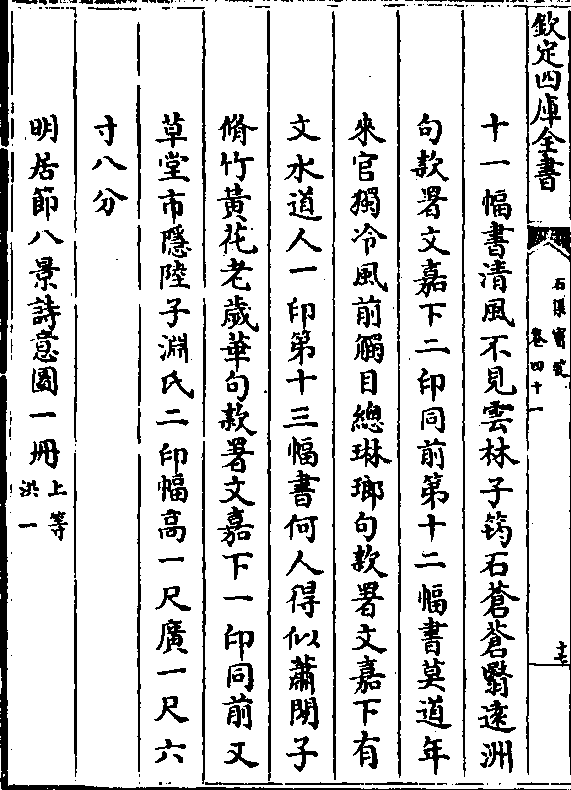 欽定四庫全書
石渠寶笈 卷四十一
十一幅書清風不見雲林子筠石蒼蒼翳遠洲
句款署文嘉下二印同前第十二幅書莫道年
來官獨冷風前觸目總琳瑯句款署文嘉下有
文水道人一印第十三幅書何人得似蕭閒子
脩竹黃花老歲華句款署文嘉下一印同前又
草堂市隱陸子淵氏二印幅高一尺廣一尺六
寸八分
明居節八景詩意圖一冊 上等 洪一